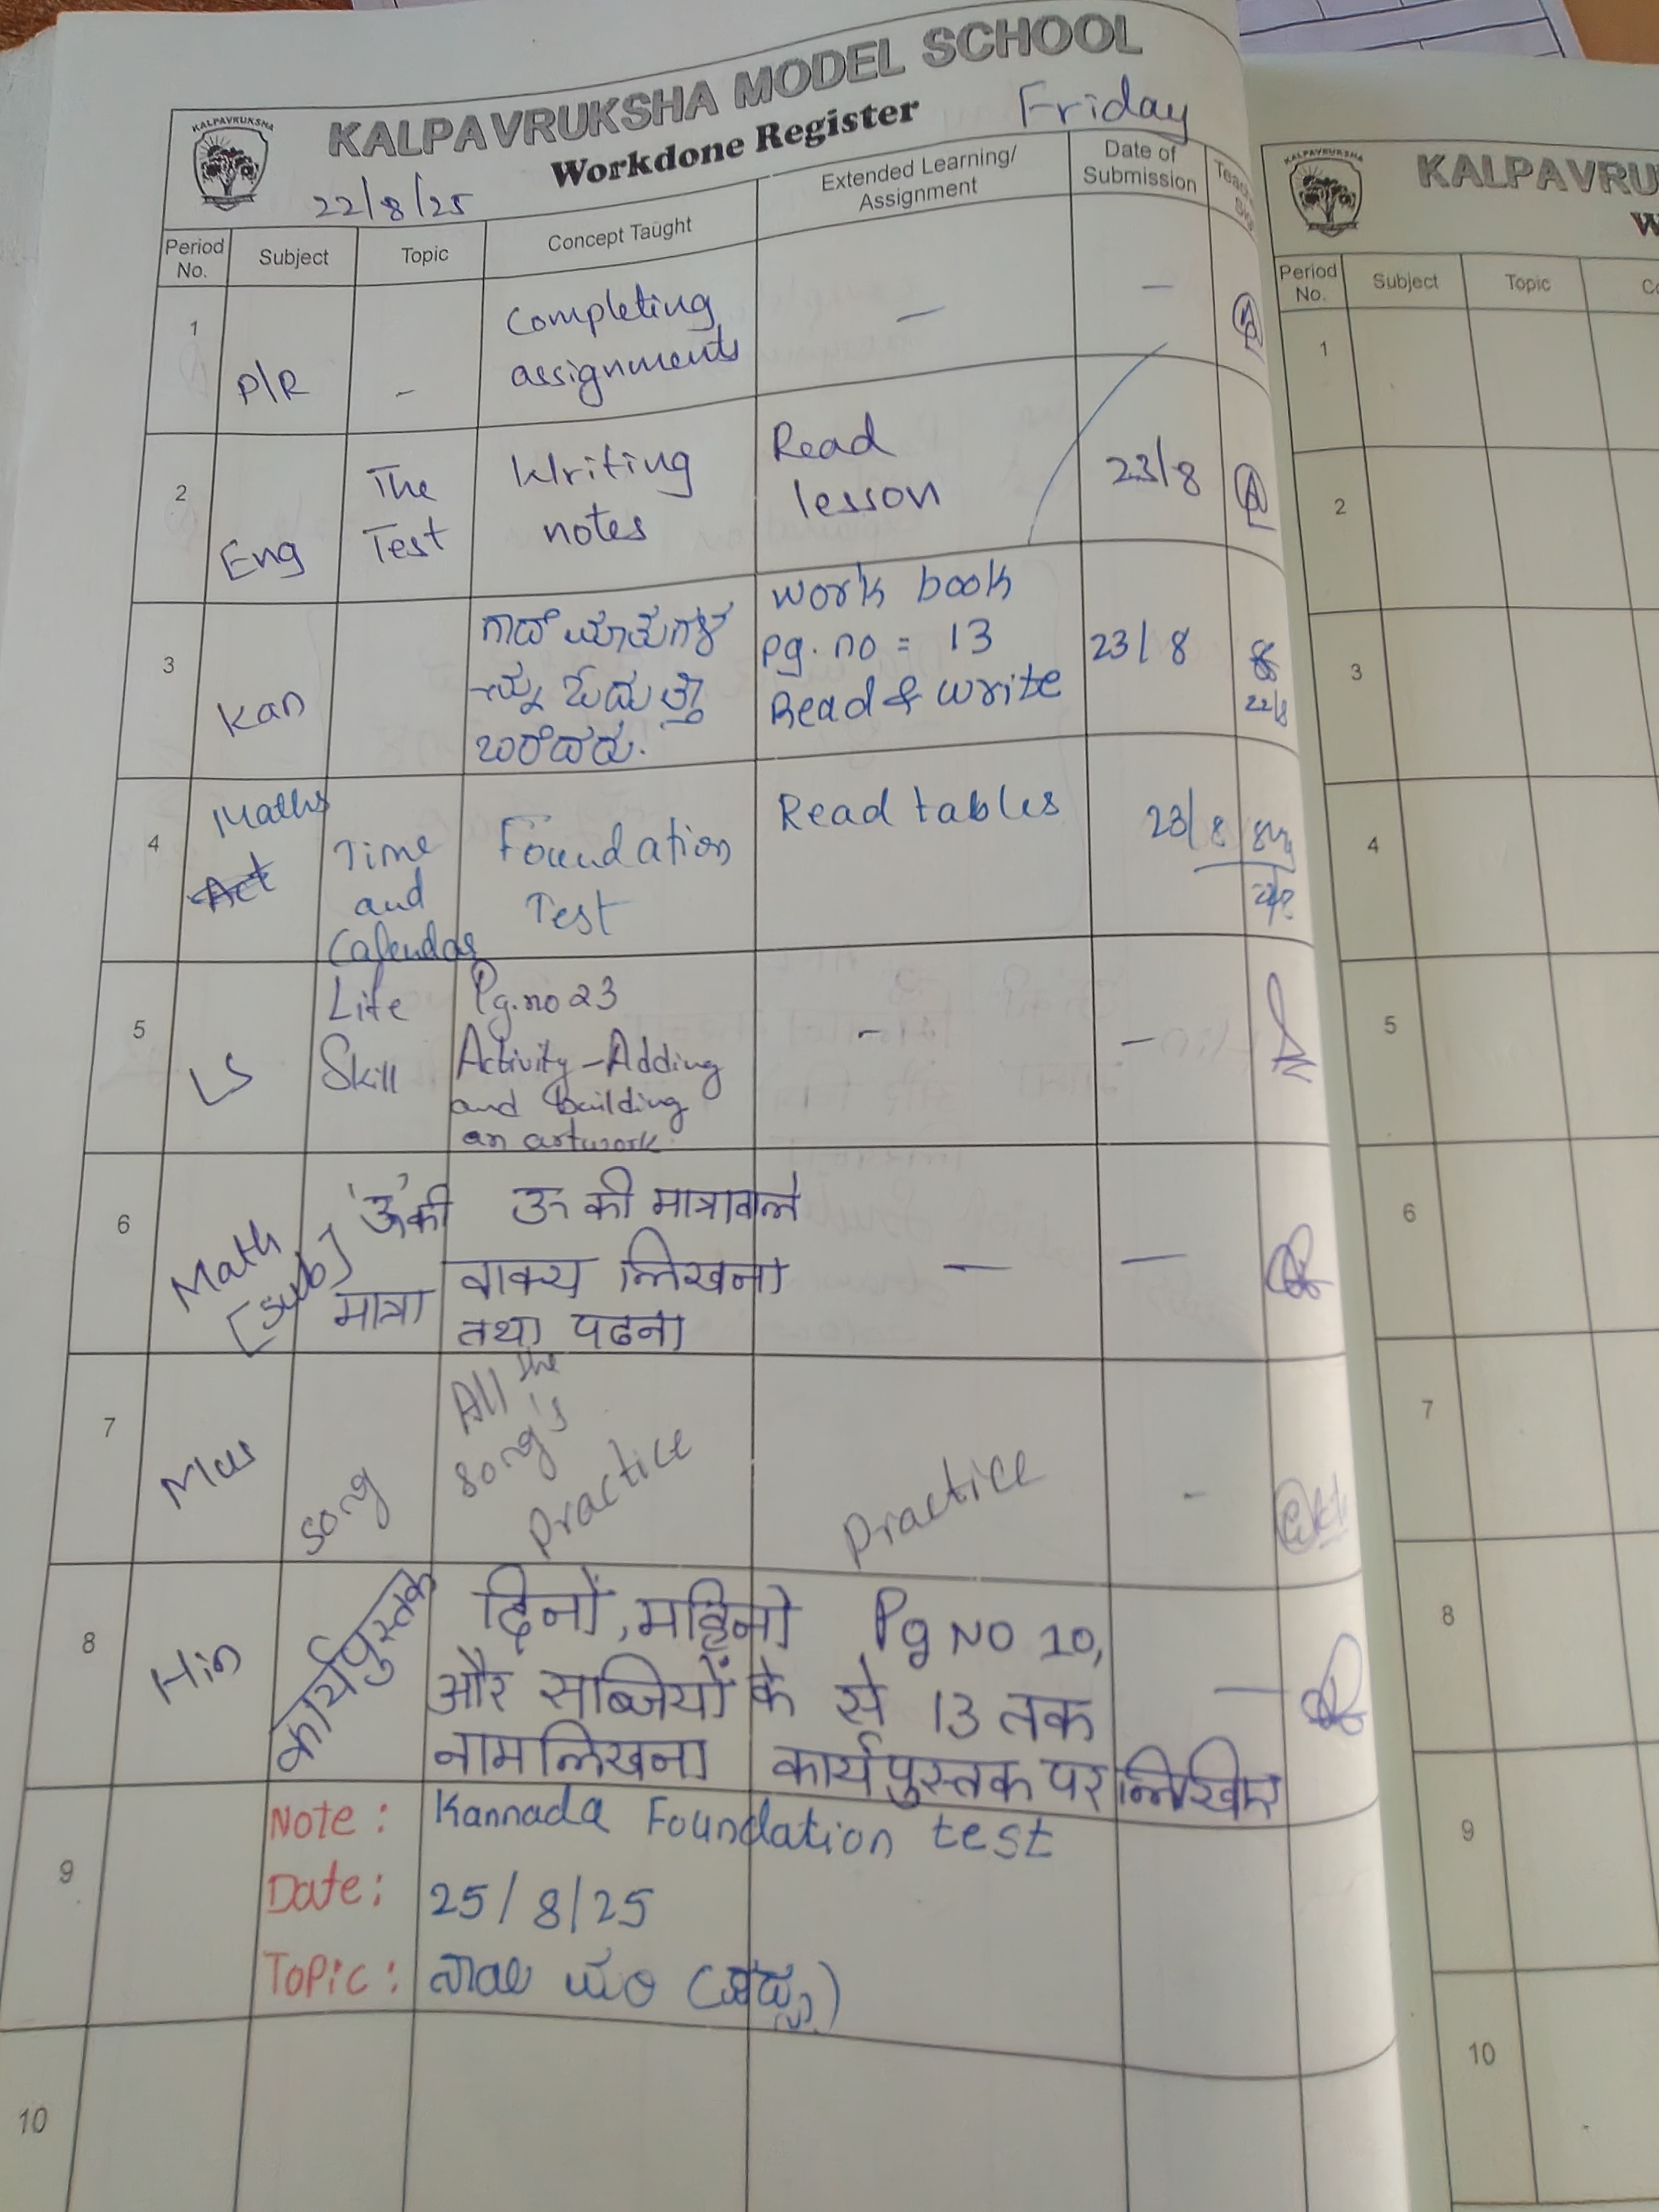 KALPAVRUKSHA
KALPAVRUKSHA MODEL SCHOOL
Workdone Register
Friday
22/8/25
Period No.
Subject
Topic
Concept Taught
Extended Learning/ Assignment
Date of Submission
1
P/R
-
Completing
assignments
—
—
2
Eng
The
Test
Writing
notes
Read
lesson
23/8
3
Kan
ಗಾದೆ ಮಾತುಗಳ
-ನ್ನು ಓದುತ್ತಾ
ಬರೆದರು.
Work book
pg. no = 13
Read & write
23/8
22/8
4
Maths
Act
Time
and
Calendar
Foundation
Test
Read tables
23/8
5
LS
Life
Skill
Pg.no 23
Activity-Adding
and Building
an artwork.
-
—
6
Math
[Sub]
'ऊ'की
मात्रा
ऊ की मात्रावाले
वाक्य लिखना
तथा पढना
—
—
7
Mus
song
All the
song's
practice
practice
-
8
Hin
कार्यपुस्तक
दिनों, महिनों
और सब्जियों के
नाम लिखना
Pg NO 10,
से 13 तक
कार्यपुस्तक पर लिखिए
—
9
Note: Kannada Foundation test
Date: 25/8/25
Topic: ನಾಯಿ ಮರಿ (ಪದ್ಯ)
10
KALPAVRUKSHA
KALPAVRU
Period No.
Subject
Topic
1
2
3
4
5
6
7
8
9
10